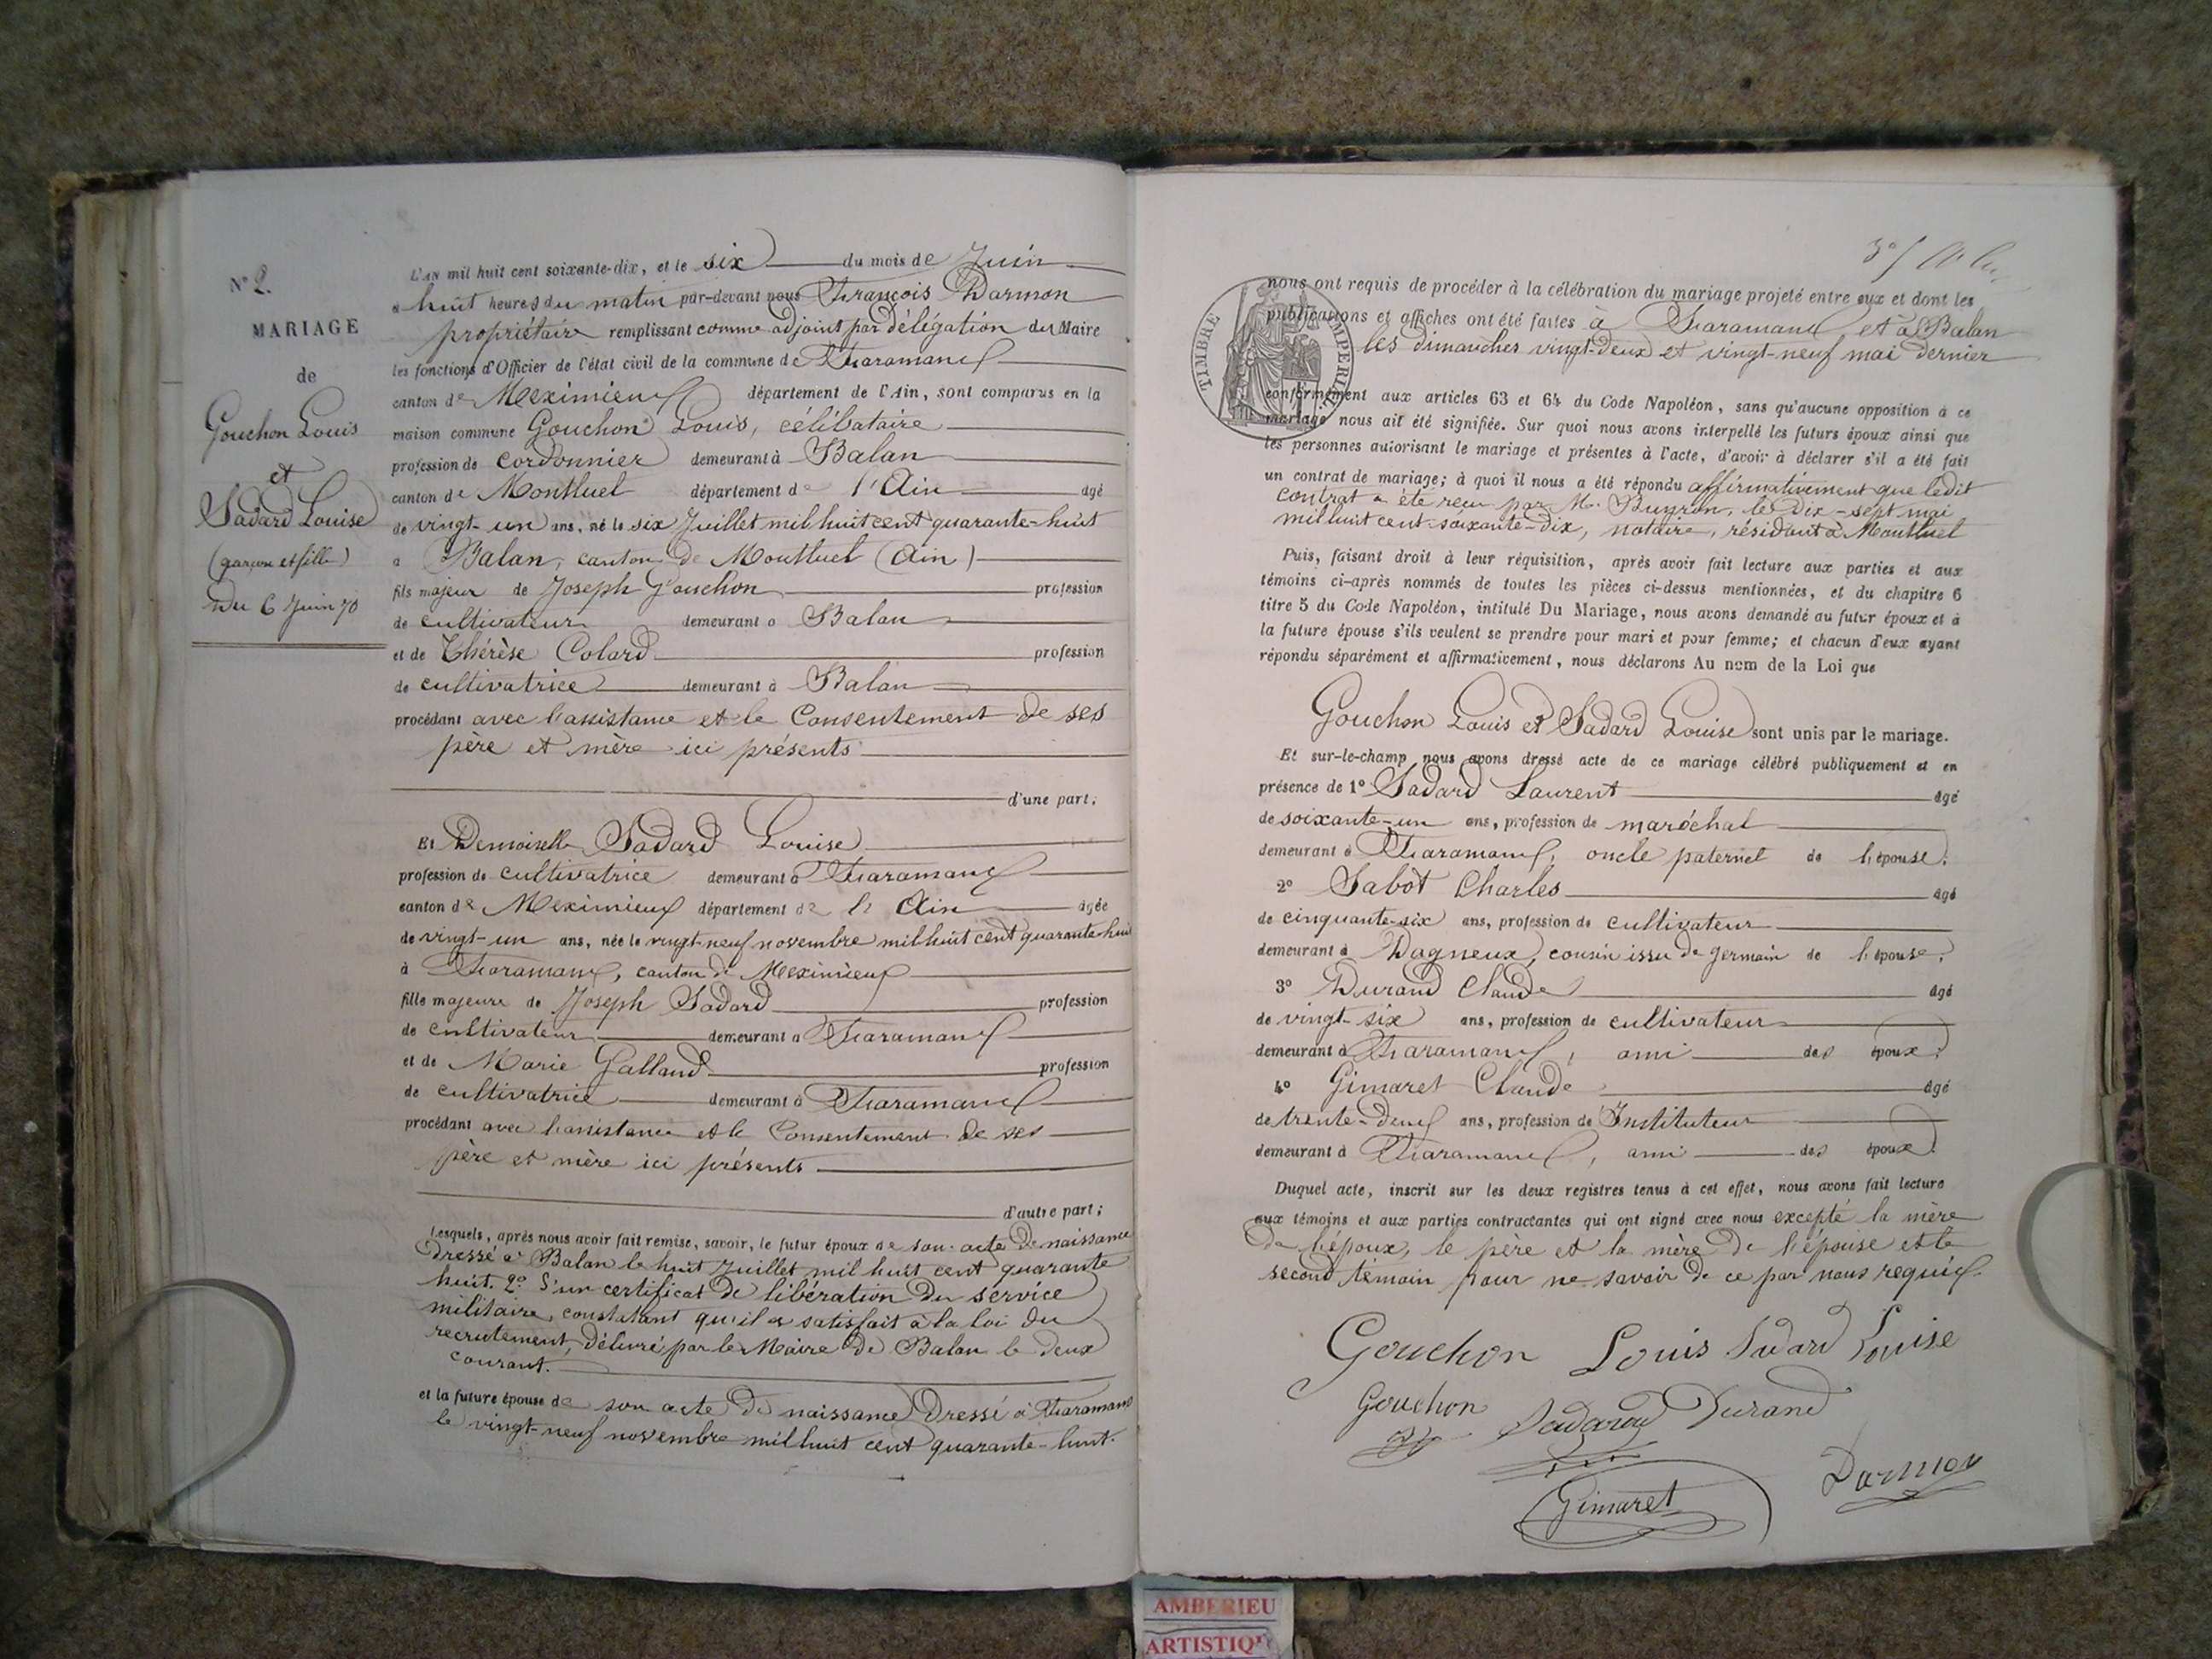 N° 2.
MARIAGE
de
Gouchon Louis
et
Sadard Louise
(garçon et fille)
Du 6 Juin 70
L'AN mil huit cent soixante-dix, et le six du mois de Juin
a huit heures du matin par-devant nous François Darmon
propriétaire remplissant comme adjoint par délégation du Maire
les fonctions d'Officier de l'état civil de la commune de Faramans
canton de Meximieux département de l'Ain, sont comparus en la
maison commune Gouchon Louis, célibataire
profession de cordonnier demeurant à Balan
canton de Montluel département de l'Ain âgé
de vingt-un ans, né le six Juillet mil huit cent quarante-huit
a Balan, canton de Montluel (Ain)
fils majeur de Joseph Gouchon profession
de cultivateur demeurant a Balan
et de Thérèse Colard profession
de cultivatrice demeurant à Balan
procédant avec l'assistance et le Consentement de ses
père et mère ici présents
d'une part;
Et Demoiselle Sadard Louise
profession de cultivatrice demeurant à Faramans
canton de Meximieux département de l'Ain âgée
de vingt-un ans, née le vingt-neuf novembre mil huit cent quarante-huit
à Faramans, canton de Meximieux
fille majeure de Joseph Sadard profession
de cultivateur demeurant a Faramans
et de Marie Galland profession
de cultivatrice demeurant à Faramans
procédant avec l'assistance et le Consentement de ses
père et mère ici présents
d'autre part;
Lesquels, après nous avoir fait remise, savoir, le futur époux de son acte de naissance
dressé à Balan le huit Juillet mil huit cent quarante
huit. 2° D'un certificat de libération du service
militaire, constatant qu'il a satisfait à la loi du
recrutement, délivré par le Maire de Balan le deux
courant.
et la future épouse de son acte de naissance dressé à Faramans
le vingt-neuf novembre mil huit cent quarante-huit.
TIMBRE IMPERIAL
nous ont requis de procéder à la célébration du mariage projeté entre eux et dont les
publications et affiches ont été faites à Faramans et à Balan
les dimanches vingt-deux et vingt-neuf mai dernier
conformément aux articles 63 et 64 du Code Napoléon, sans qu'aucune opposition à ce
mariage nous ait été signifiée. Sur quoi nous avons interpellé les futurs époux ainsi que
les personnes autorisant le mariage et présentes à l'acte, d'avoir à déclarer s'il a été fait
un contrat de mariage; à quoi il nous a été répondu affirmativement que ledit
contrat a été reçu par M. Buyron, le dix-sept mai
mil huit cent soixante-dix, notaire, résidant à Montluel
Puis, faisant droit à leur réquisition, après avoir fait lecture aux parties et aux
témoins ci-après nommés de toutes les pièces ci-dessus mentionnées, et du chapitre 6
titre 5 du Code Napoléon, intitulé Du Mariage, nous avons demandé au futur époux et à
la future épouse s'ils veulent se prendre pour mari et pour femme; et chacun d'eux ayant
répondu séparément et affirmativement, nous déclarons Au nom de la Loi que
Gouchon Louis et Sadard Louise sont unis par le mariage.
Et sur-le-champ nous avons dressé acte de ce mariage célébré publiquement et en
présence de 1° Sadard Laurent âgé
de soixante-un ans, profession de maréchal
demeurant à Faramans, oncle paternel de l'épouse;
2° Sabot Charles âgé
de cinquante-six ans, profession de cultivateur
demeurant à Dagneux, cousin issu de germain de l'épouse;
3° Durand Claude âgé
de vingt-six ans, profession de cultivateur
demeurant à Faramans, ami des époux;
4° Gimaret Claude âgé
de trente-deux ans, profession de Instituteur
demeurant à Faramans, ami des époux.
Duquel acte, inscrit sur les deux registres tenus à cet effet, nous avons fait lecture
aux témoins et aux parties contractantes qui ont signé avec nous excepté la mère
de l'époux, le père et la mère de l'épouse et le
second témoin pour ne savoir de ce par nous requis.
Gouchon Louis Sadard Louise
Gouchon Sadard Durand
Gimaret Darmon
AMBERIEU
ARTISTIQU